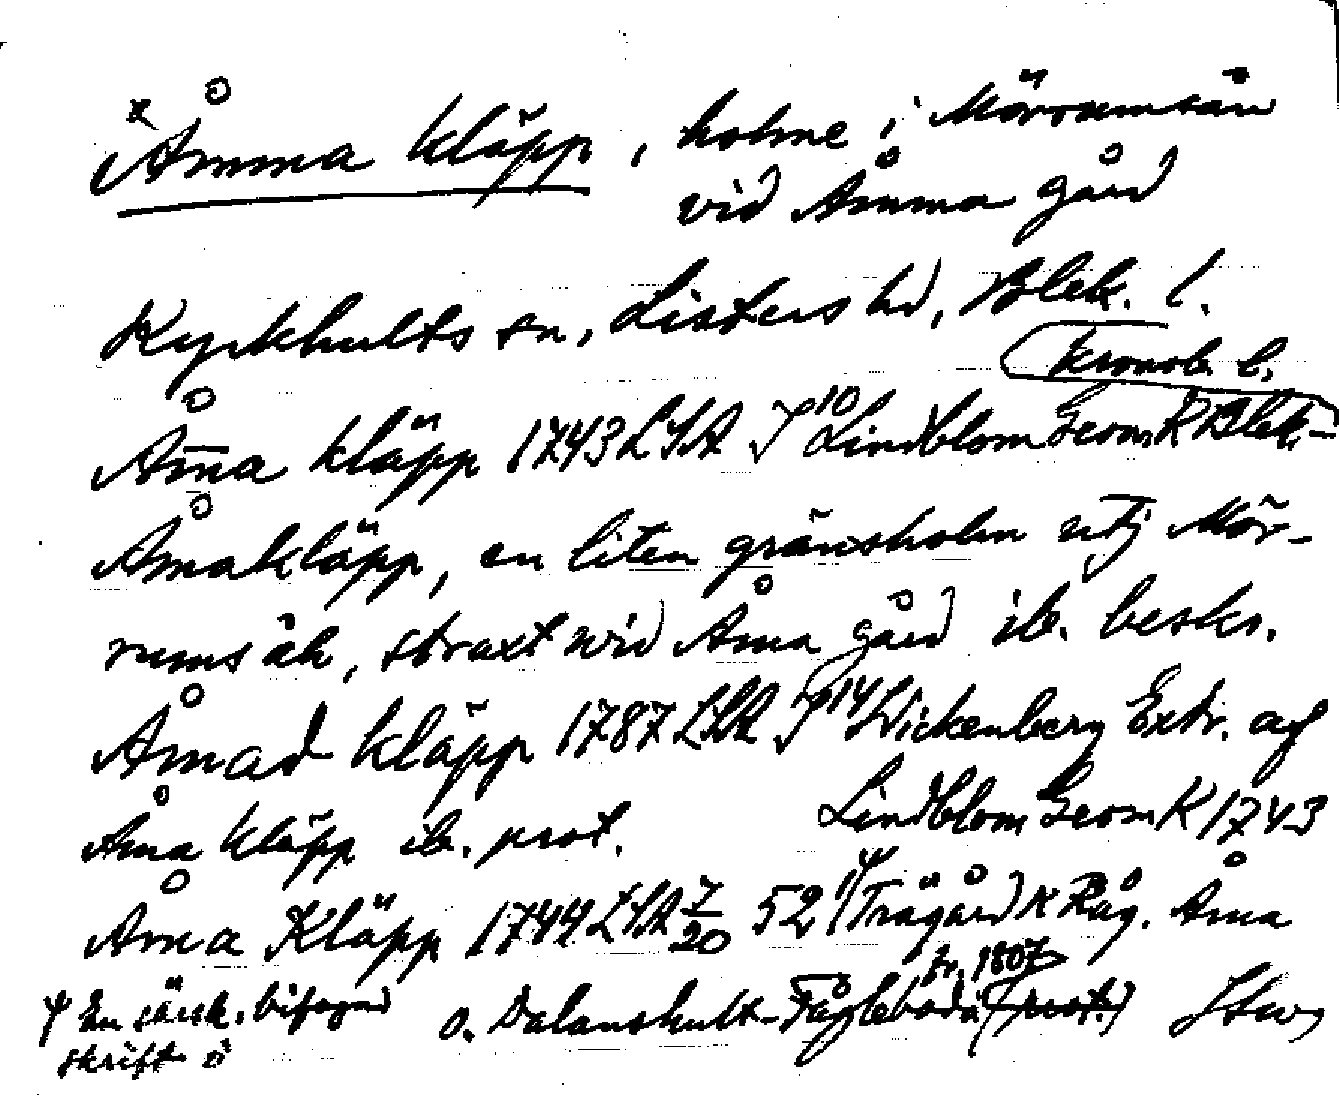 x Åmma kläpp, holme i Mörrumsån
vid Åmma gård
Kyrkhults sn, Listers hd, Blek. l.
Kronob. l.
Åm̄a kläpp 1743 LSA J10 Lindblom Geom K Blek.-
Åmakläpp, en liten gränsholm utj Mör-
rums åh, straxt wid Åma gård ib. beskr.
Åmad kläpp 1787 LSA J14 Wickenberg Extr. af
Lindblom Geom K 1743
Åma kläpp ib. prot.
Åma Kläpp 1744 LSA 7/20 52 Trägård K Råg. Åma
fr. 1807
o. Dalanshult-Fågleboda (prot.)
ψ En särsk. bifogad
skrift ö